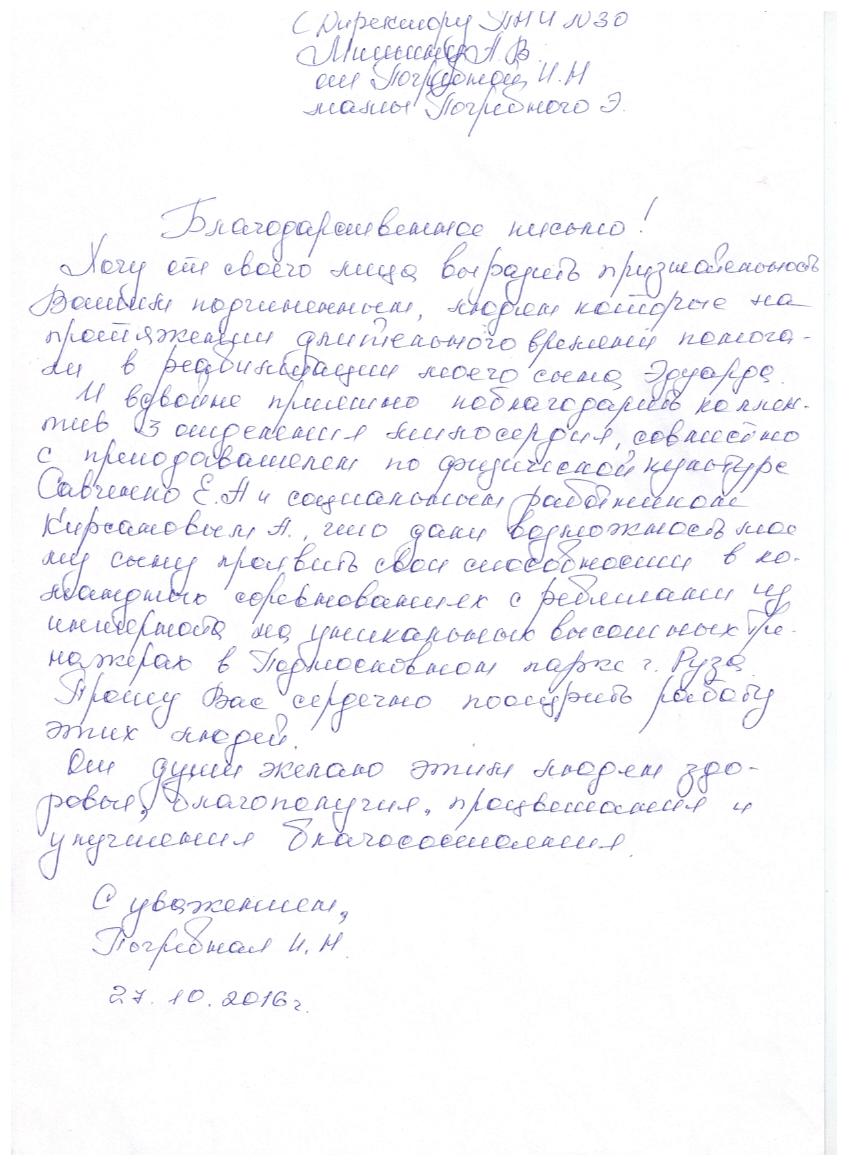 Директору ПНИ №30
Мишину А. В.
от Погребной И. Н
мамы Погребного Э.
Благодарственное письмо!
Хочу от своего лица выразить признательность
Вашим подчиненным, людям которые на
протяжении длительного времени помога-
ли в реабилитации моего сына, Эдуарда.
И вдвойне приятно поблагодарить коллек-
тив 3 отделения милосердия, совместно
с преподавателем по физической культуре
Савченко Е. А и социальным работником
Кирсановым А., что дали возможность мое
му сыну проявить свои способности в ко-
мандных соревнованиях с ребятами из
интерната на уникальных высотных тре-
нажерах в Подмосковном парке г. Руза.
Прошу Вас сердечно поощрить работу
этих людей.
От души желаю этим людям здо-
ровья, благополучия, процветания и
улучшения благосостояния.
С уважением,
Погребная И. Н.
27. 10. 2016г.